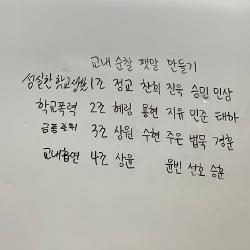 교내 순찰 팻말 만들기
성실한 학교생활 1조 정교 찬희 진욱 승민 민상
학교폭력 2조 혜림 용현 지유 민준 태하
3조 상원 수현 주은 범묵 정훈
교내흡연 4조 상윤 윤빈 선호 승훈